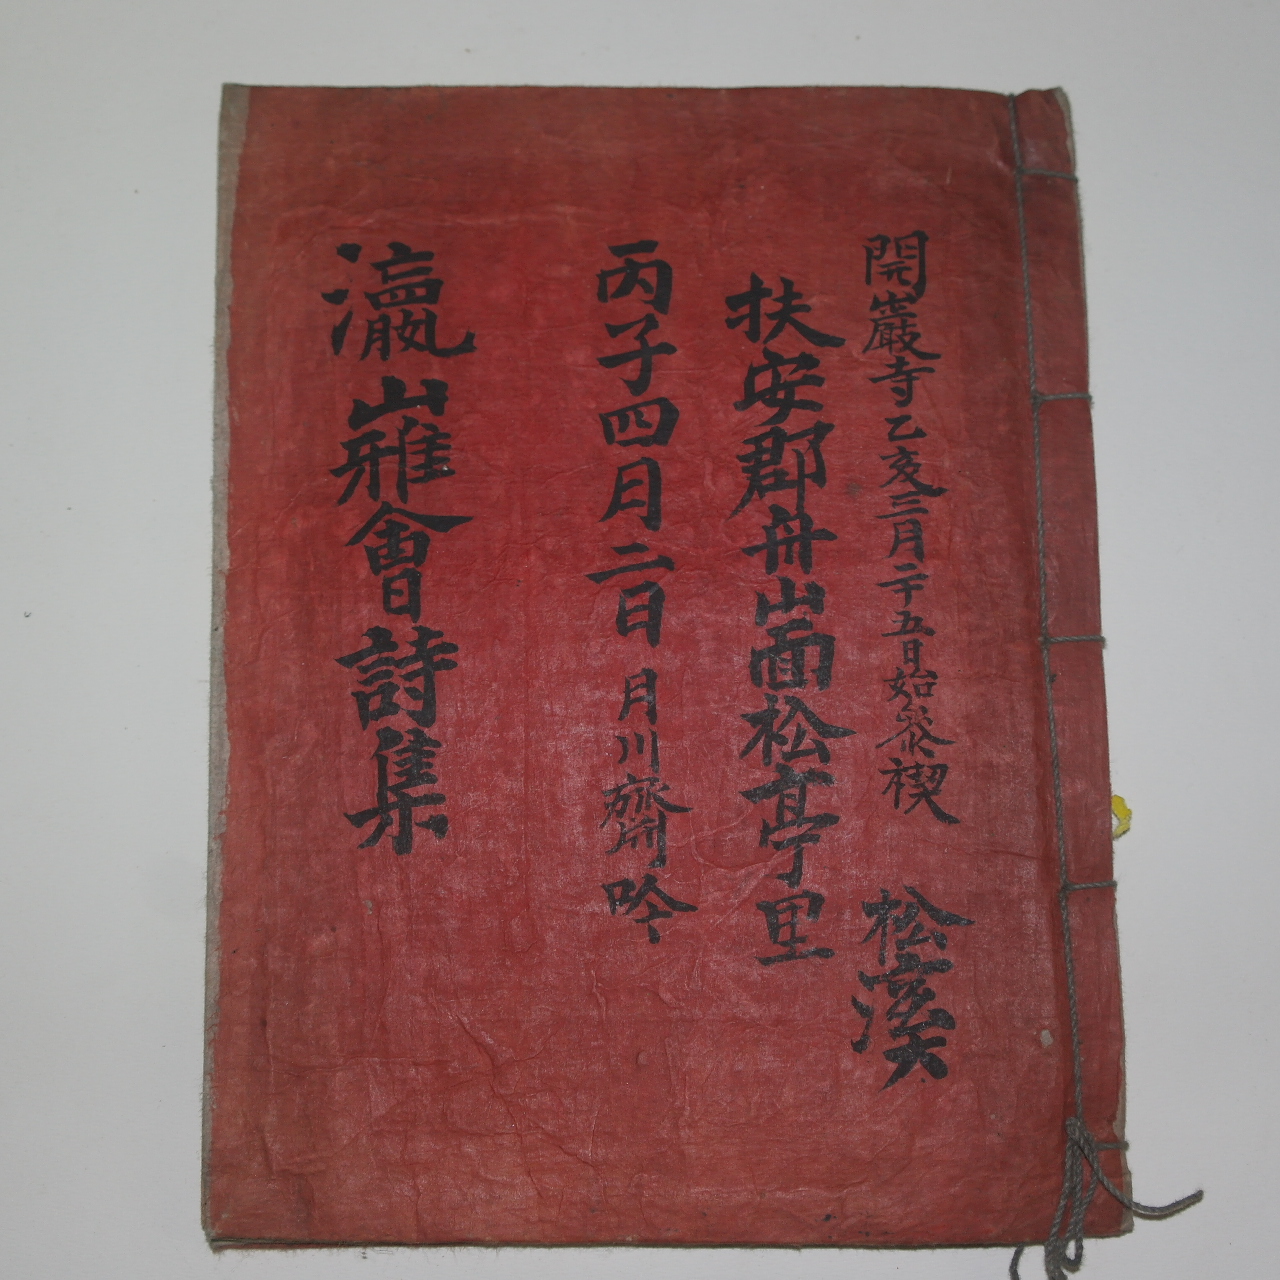 開巖寺乙亥三月二十五日始參禊 松溪
扶安郡舟山面松亭里
丙子四月二日 月川齋吟
瀛山雅會詩集